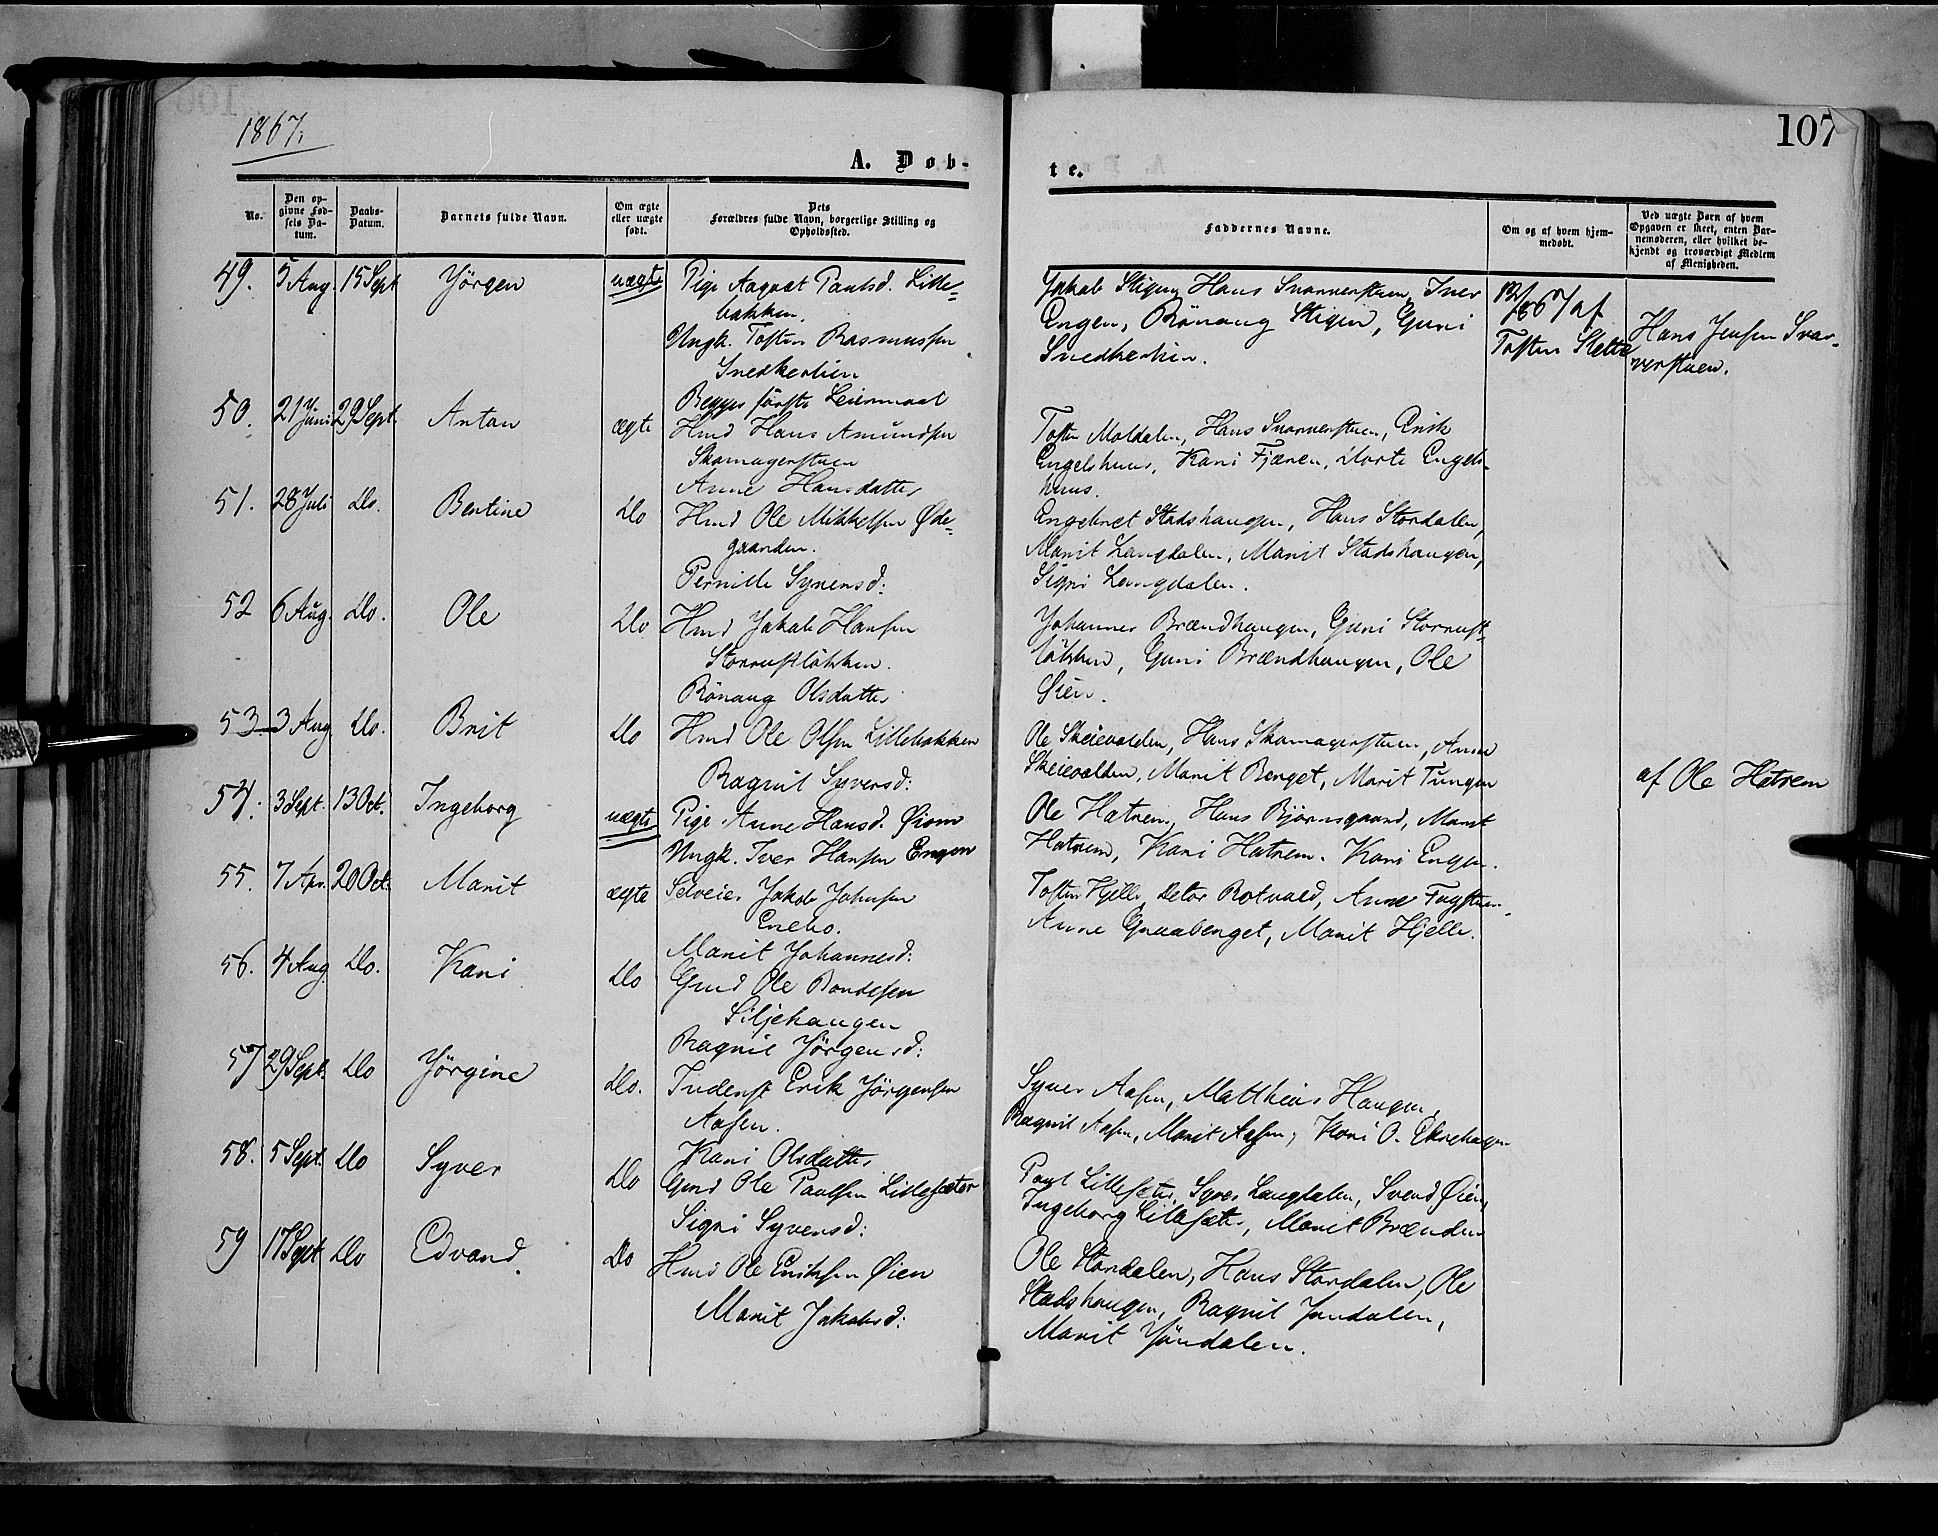 1867.
107
A. Døb-
te.
No.
Den opgivne Fødsels Datum.
Daabs-Datum.
Barnets fulde Navn.
Om ægte eller uægte født.
Dets Forældres fulde Navn, borgerlige Stilling og Opholdssted.
Faddernes Navne.
Om og af hvem hjemmedøbt.
Ved uægte Børn af hvem Opgaven er skeet, enten Barnemoderen, eller hvilket bekjendt og troværdigt Medlem af Menigheden.
49. 5 Aug. 15 Sept Jörgen uægte Pige Aagaat Paulsd. Lille-
bakken.
Ungk. Tosten Rasmussen
Snedkerlien
Begges förste Leiermaal
Jakob Stigen, Hans Svarverstuen, Iver
Engen, Rönaug Stigen, Guri
Snedkerlien.
67 af
Tosten Slette
Hans Jensen Svar-
verstuen.
50. 21 Juni 29 Sept. Anton ægte Hmd Hans Amundsen
Skomagerstuen
Anne Hansdatter
Tosten Moldalen, Hans Svarverstuen, Erik
Engelshuus, Kari Fjæren, Dorte Engels-
huus.
51. 28 Juli Do. Bertine Do Hmd Ole Mikkelsen Øde-
gaarden.
Pernille Syversd:
Engebret Stadshaugen, Hans Stordalen,
Marit Langdalen, Marit Stadshaugen,
Sigri Langdalen.
52 6 Aug. Do. Ole Do Hmd Jakob Hansen
Storrustløkken.
Rönaug Olsdatter
Johannes Brændhaugen, Guri Storrust-
løkken, Guri Brændhaugen, Ole
Øien.
53 3 Aug Do. Brit Do Hmd Ole Olsen Lillebakken
Ragnil Syversd:
Ole Skeievolden, Hans Skomagerstuen, Anne
Skeievolden, Marit Berget, Marit Tungen
54. 3 Sept. 13 Oct. Ingeborg uægte Pige Anne Hansd. Øiom
Ungk. Iver Hansen Engen
Ole Hatrem, Hans Bjørnsgaard, Marit
Hatrem, Kari Hatrem. Kari Engen.
af Ole Hatrem
55. 7 Apr. 20 Oct. Marit ægte Selveier Jakob Johnsen
Enebo.
Marit Johannesd:
Tosten Hjelle, Peter Rotvold, Anne
Anne Graaberget, Marit Hjelle.
56. 4 Aug Do. Kari Do Gmd Ole Bondesen
Siljehaugen
Ragnil Jörgensd:
57 29 Sept. Do Jörgine Do. Inderst Erik Jörgensen
Aasen.
Kari Olsdatter
Syver Aasen, Matthias Haugen,
Ragnil Aasen, Marit Aasen, Kari O. Ekrehagen
58. 5 Sept. Do Syver Do Gmd Ole Paulsen Lillesæter
Sigri Syversd:
Paul Lillesæter, Syver Langdalen, Svend Øien,
Ingeborg Lillesæter, Marit Brænden
59 17 Sept Do Edvard. Do Hmd Ole Eriksen Øien
Marit Jakobsd:
Ole Stordalen, Hans Stordalen, Ole
Stadshaugen, Ragnil Jöndalen,
Marit Jöndalen.